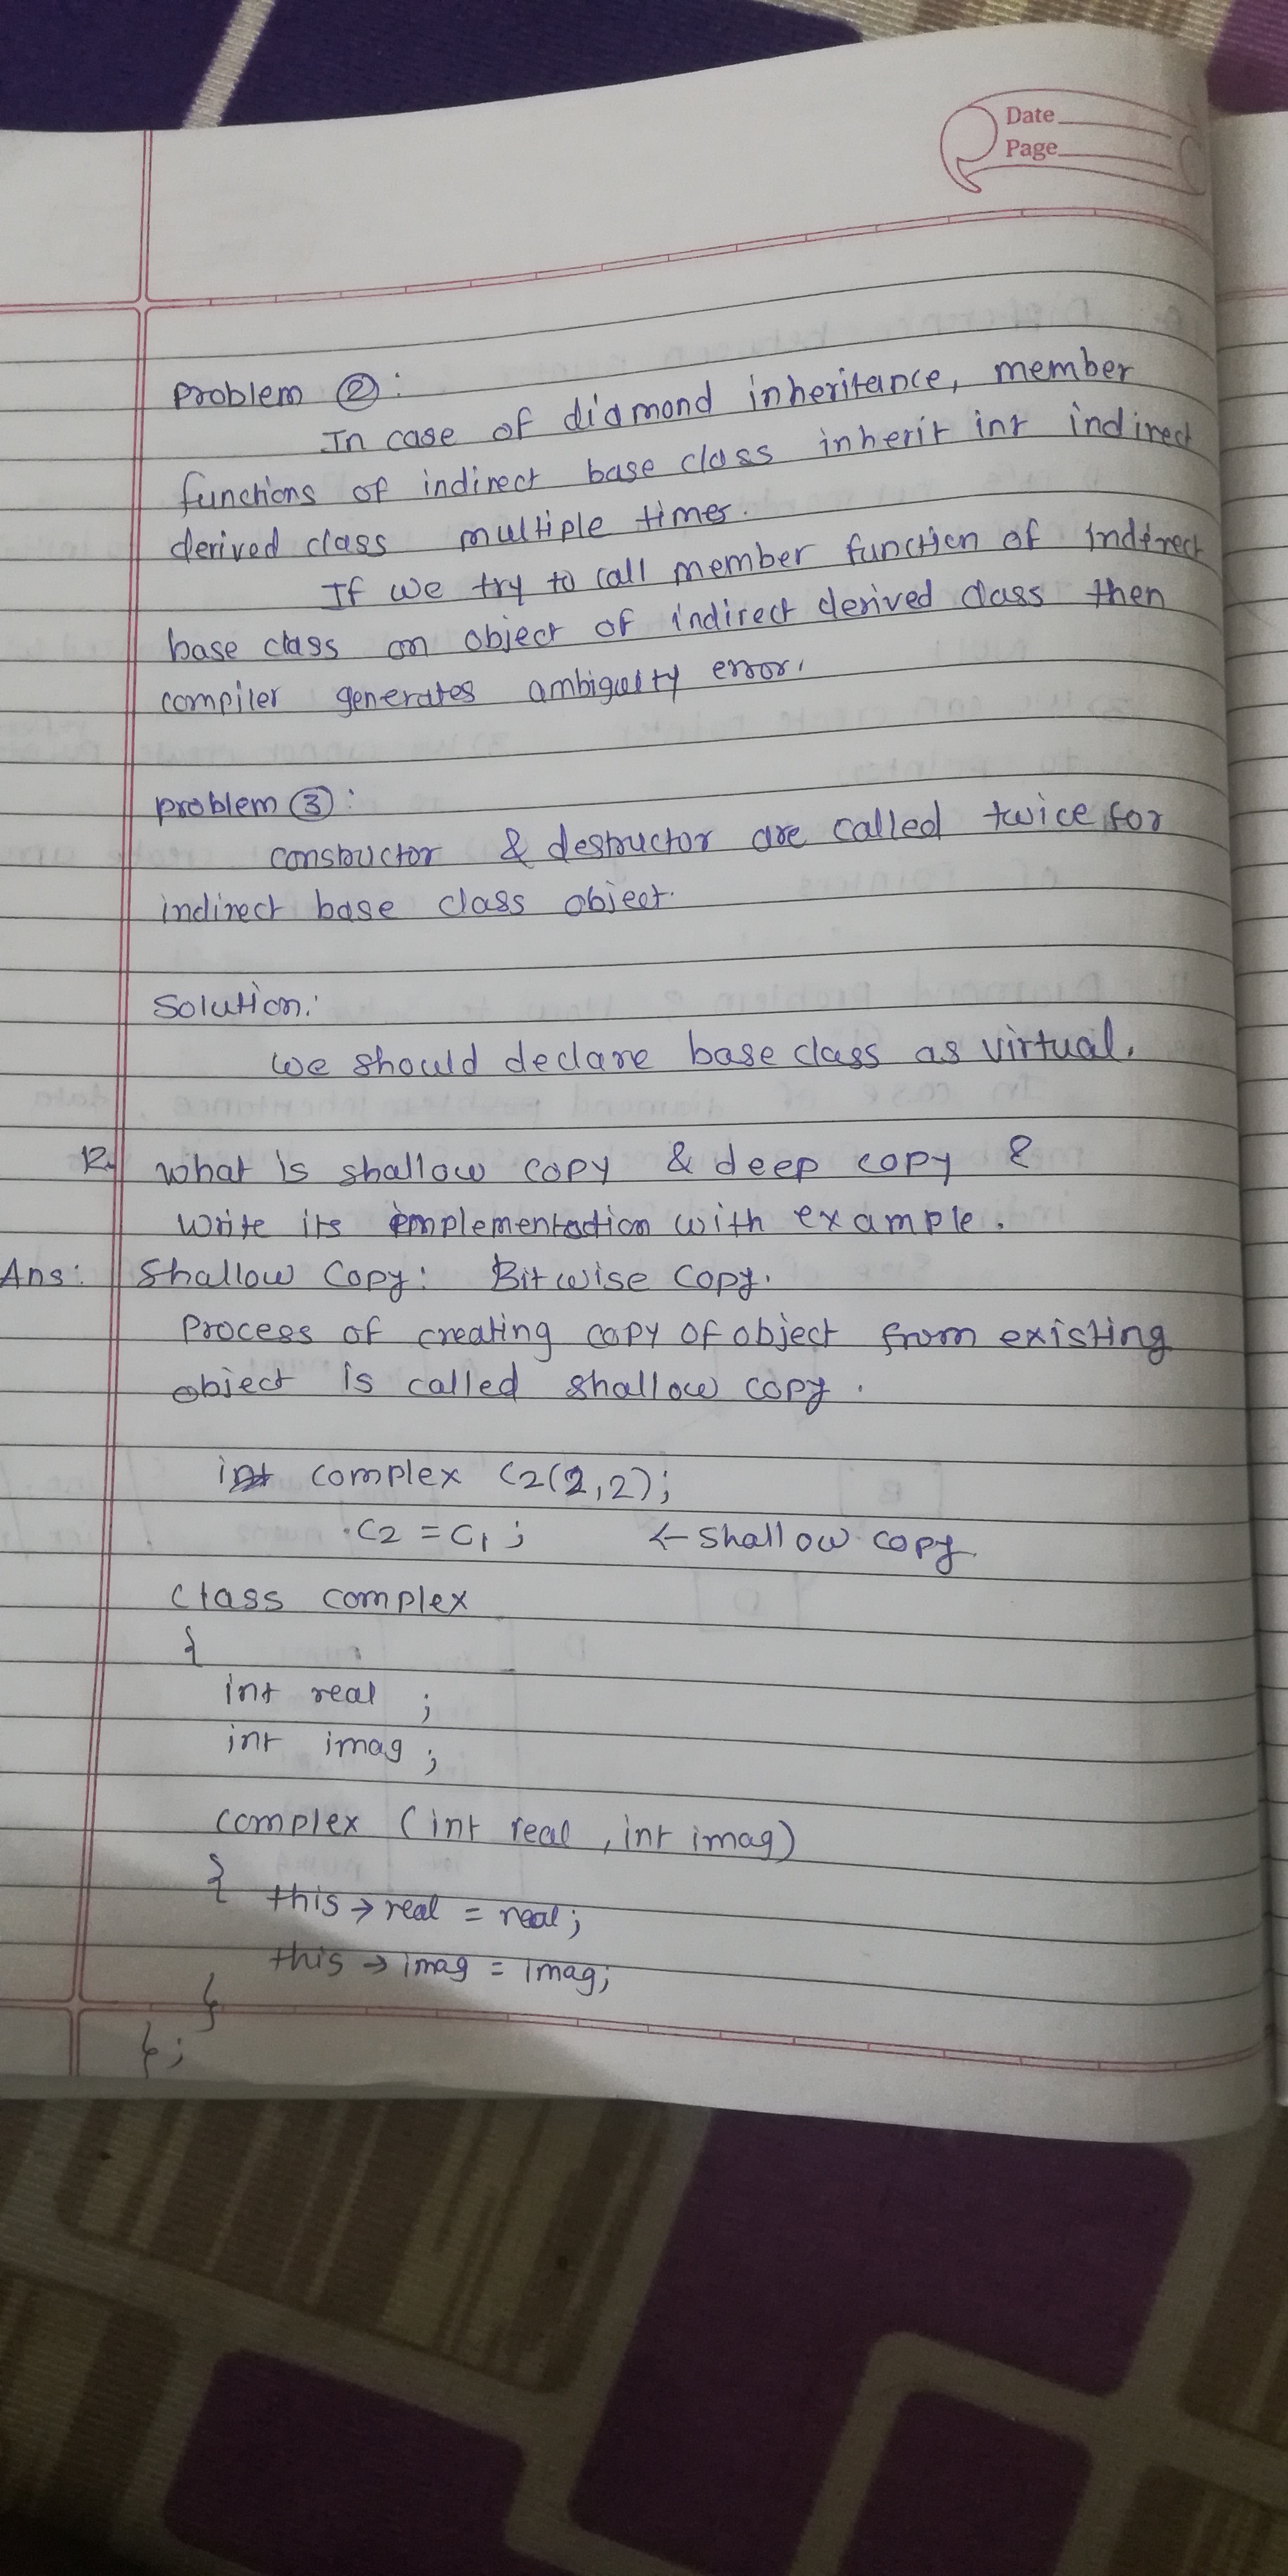 Date
Page
Problem ②:
In case of diamond inheritance, member
functions of indirect base class inherit int indirect
derived class multiple times.
If we try to call member function of indirect
base class on object of indirect derived class then
compiler generates ambiguity error.
problem ③:
constructor & destructor are called twice for
indirect base class object.
Solution:
we should declare base class as virtual.
12. what is shallow copy & deep copy ?
write its implementation with example.
Ans: Shallow Copy: Bitwise Copy.
Process of creating copy of object from existing
object is called shallow copy.
complex c2(2,2);
c2 = c1; ← shallow copy
Class complex
{
int real ;
int imag ;
complex (int real , int imag)
{ this → real = real;
this → imag = imag;
}
};